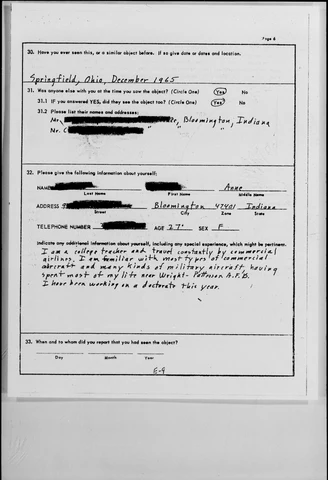 Page 6
30. Have you ever seen this, or a similar object before. If so give date or dates and location.
Springfield, Ohio, December 1965
31. Was anyone else with you at the time you saw the object? (Circle One) Yes No
31.1 IF you answered YES, did they see the object too? (Circle One) Yes No
31.2 Please list their names and addresses:
Mr. Bloomington, Indiana
Mr. C " "
32. Please give the following information about yourself:
NAME Anne
Last Name First Name Middle Name
ADDRESS Bloomington 47401 Indiana
Street City Zone State
TELEPHONE NUMBER AGE 27 SEX F
Indicate any additional information about yourself, including any special experience, which might be pertinent.
I am a college teacher and travel constantly by commercial
airlines. I am familiar with most types of commercial
aircraft and many kinds of military aircraft, having
spent most of my life near Wright-Patterson A.F.B.
I have been working on a doctorate this year.
33. When and to whom did you report that you had seen the object?
Day Month Year
E-9